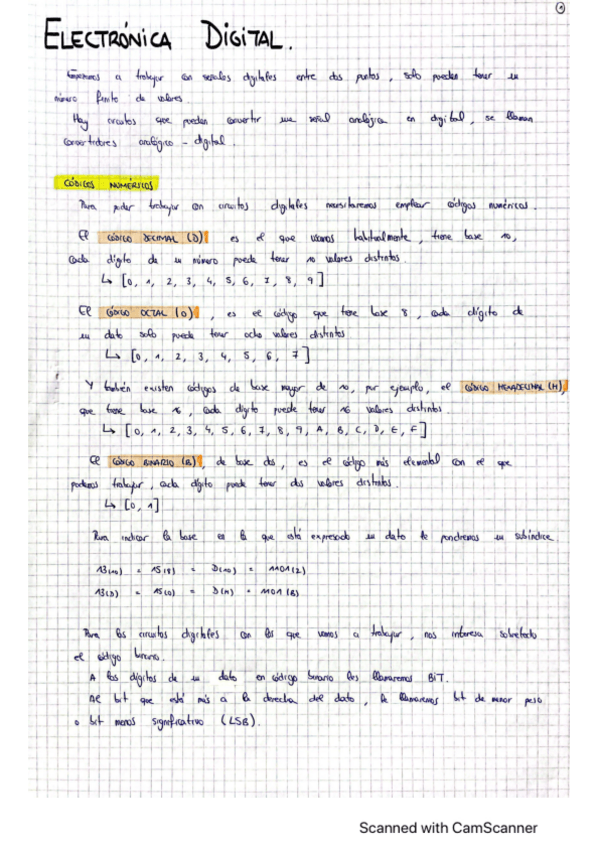 1
ELECTRÓNICA DIGITAL.
Empezamos a trabajar con señales digitales entre dos puntos, solo pueden tener un
número finito de valores.
Hay circuitos que pueden convertir una señal analógica en digital, se llaman
convertidores analógico - digital.
CÓDIGOS NUMÉRICOS
Para poder trabajar con circuitos digitales necesitaremos emplear códigos numéricos.
El CÓDIGO DECIMAL (D) es el que usamos habitualmente, tiene base 10,
cada dígito de un número puede tener 10 valores distintos.
↳ [0, 1, 2, 3, 4, 5, 6, 7, 8, 9]
El CÓDIGO OCTAL (O), es el código que tiene base 8, cada dígito de
un dato solo puede tener ocho valores distintos
↳ [0, 1, 2, 3, 4, 5, 6, 7]
Y también existen códigos de base mayor de 10, por ejemplo, el CÓDIGO HEXADECIMAL (H),
que tiene base 16, cada dígito puede tener 16 valores distintos.
↳ [0, 1, 2, 3, 4, 5, 6, 7, 8, 9, A, B, C, D, E, F]
El CÓDIGO BINARIO (B), de base dos, es el código más elemental con el que
podemos trabajar, cada dígito puede tener dos valores distintos.
↳ [0, 1]
Para indicar la base en la que está expresado un dato le pondremos un subíndice.
13(10) = 15(8) = D(16) = 1101(2)
13(D) = 15(O) = D(H) = 1101(B)
Para los circuitos digitales con los que vamos a trabajar, nos interesa sobretodo
el código binario.
A los dígitos de un dato en código binario les llamaremos BIT.
Al bit que está más a la derecha del dato, le llamaremos bit de menor peso
o bit menos significativo (LSB).
Scanned with CamScanner